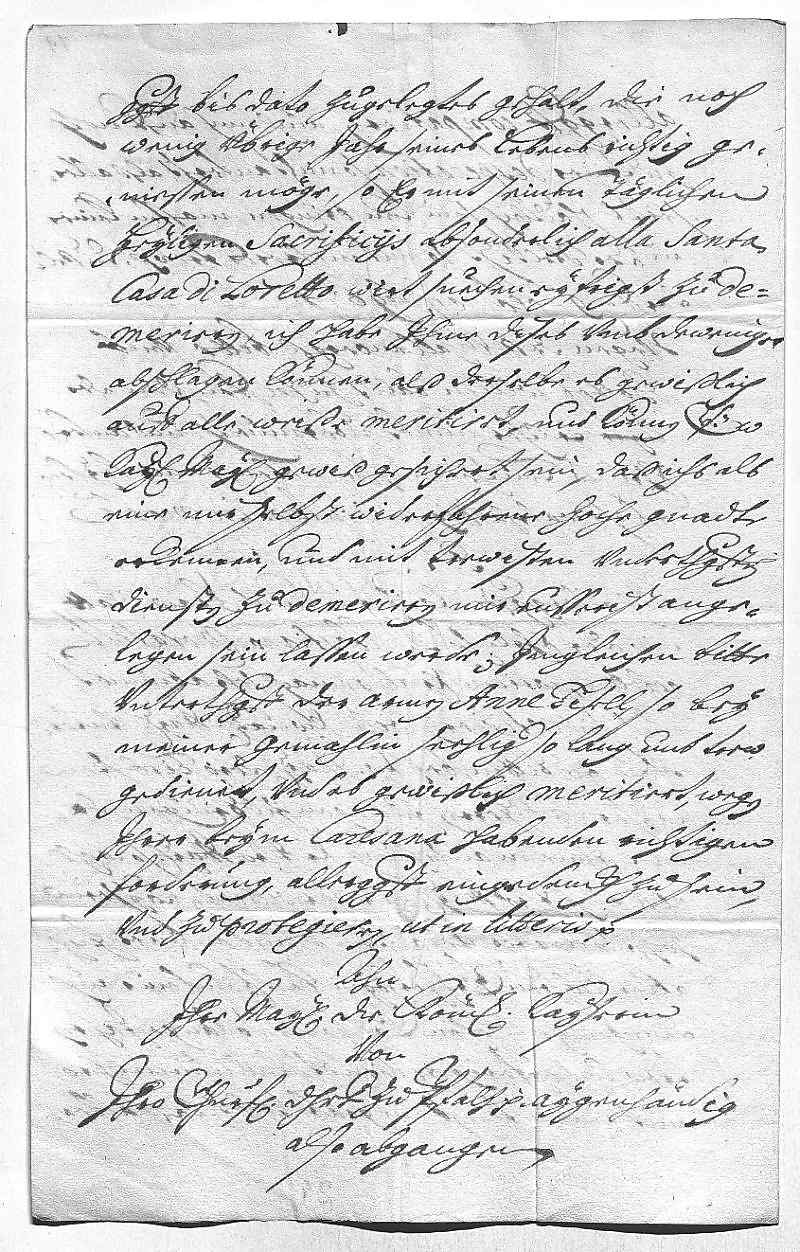 ggst bis dato zugelegtes gehalt, die noch
wenig Übrige Jahr seines Lebens richtig ge-
niessen möge, so Er mit seinen täglichen
heyligen Sacrificijs absonderlich alla Santa
Casa di Loretto wirt suechen eyfrigst zu de-
meriren, ich habe Ihme dises Umb deweniger
abschlagen können, alß derselbe es gewißlich
auf alle weiße meritirt, und können Ew
Kayl. Mayl. gewiß gesichert sein, daß ichs als
eine mir selbst widerfahrene hohe gnadt
erkennen, und mit trewisten Unterthgsten
diensten zu demeriren mir eusserist ange-
legen sein lassen werde; Imgleichen bitte
Unterthgst der armen Anne Esell, so bey
meiner Gemahlin seehlig so lang und trew
gedienet, Und es gewißlich meritirt, wegen
Ihrer beym Caresana habenden richtigen
forderung, allerggst eingedenck zu sein,
Und zu protegieren, ut in litteris p
Ahn
Ihre Mayl. die Röm. Kayserin
Von
Ihro Churfl. dhrt zu Pfaltz p. aygenhändig
also abgangen